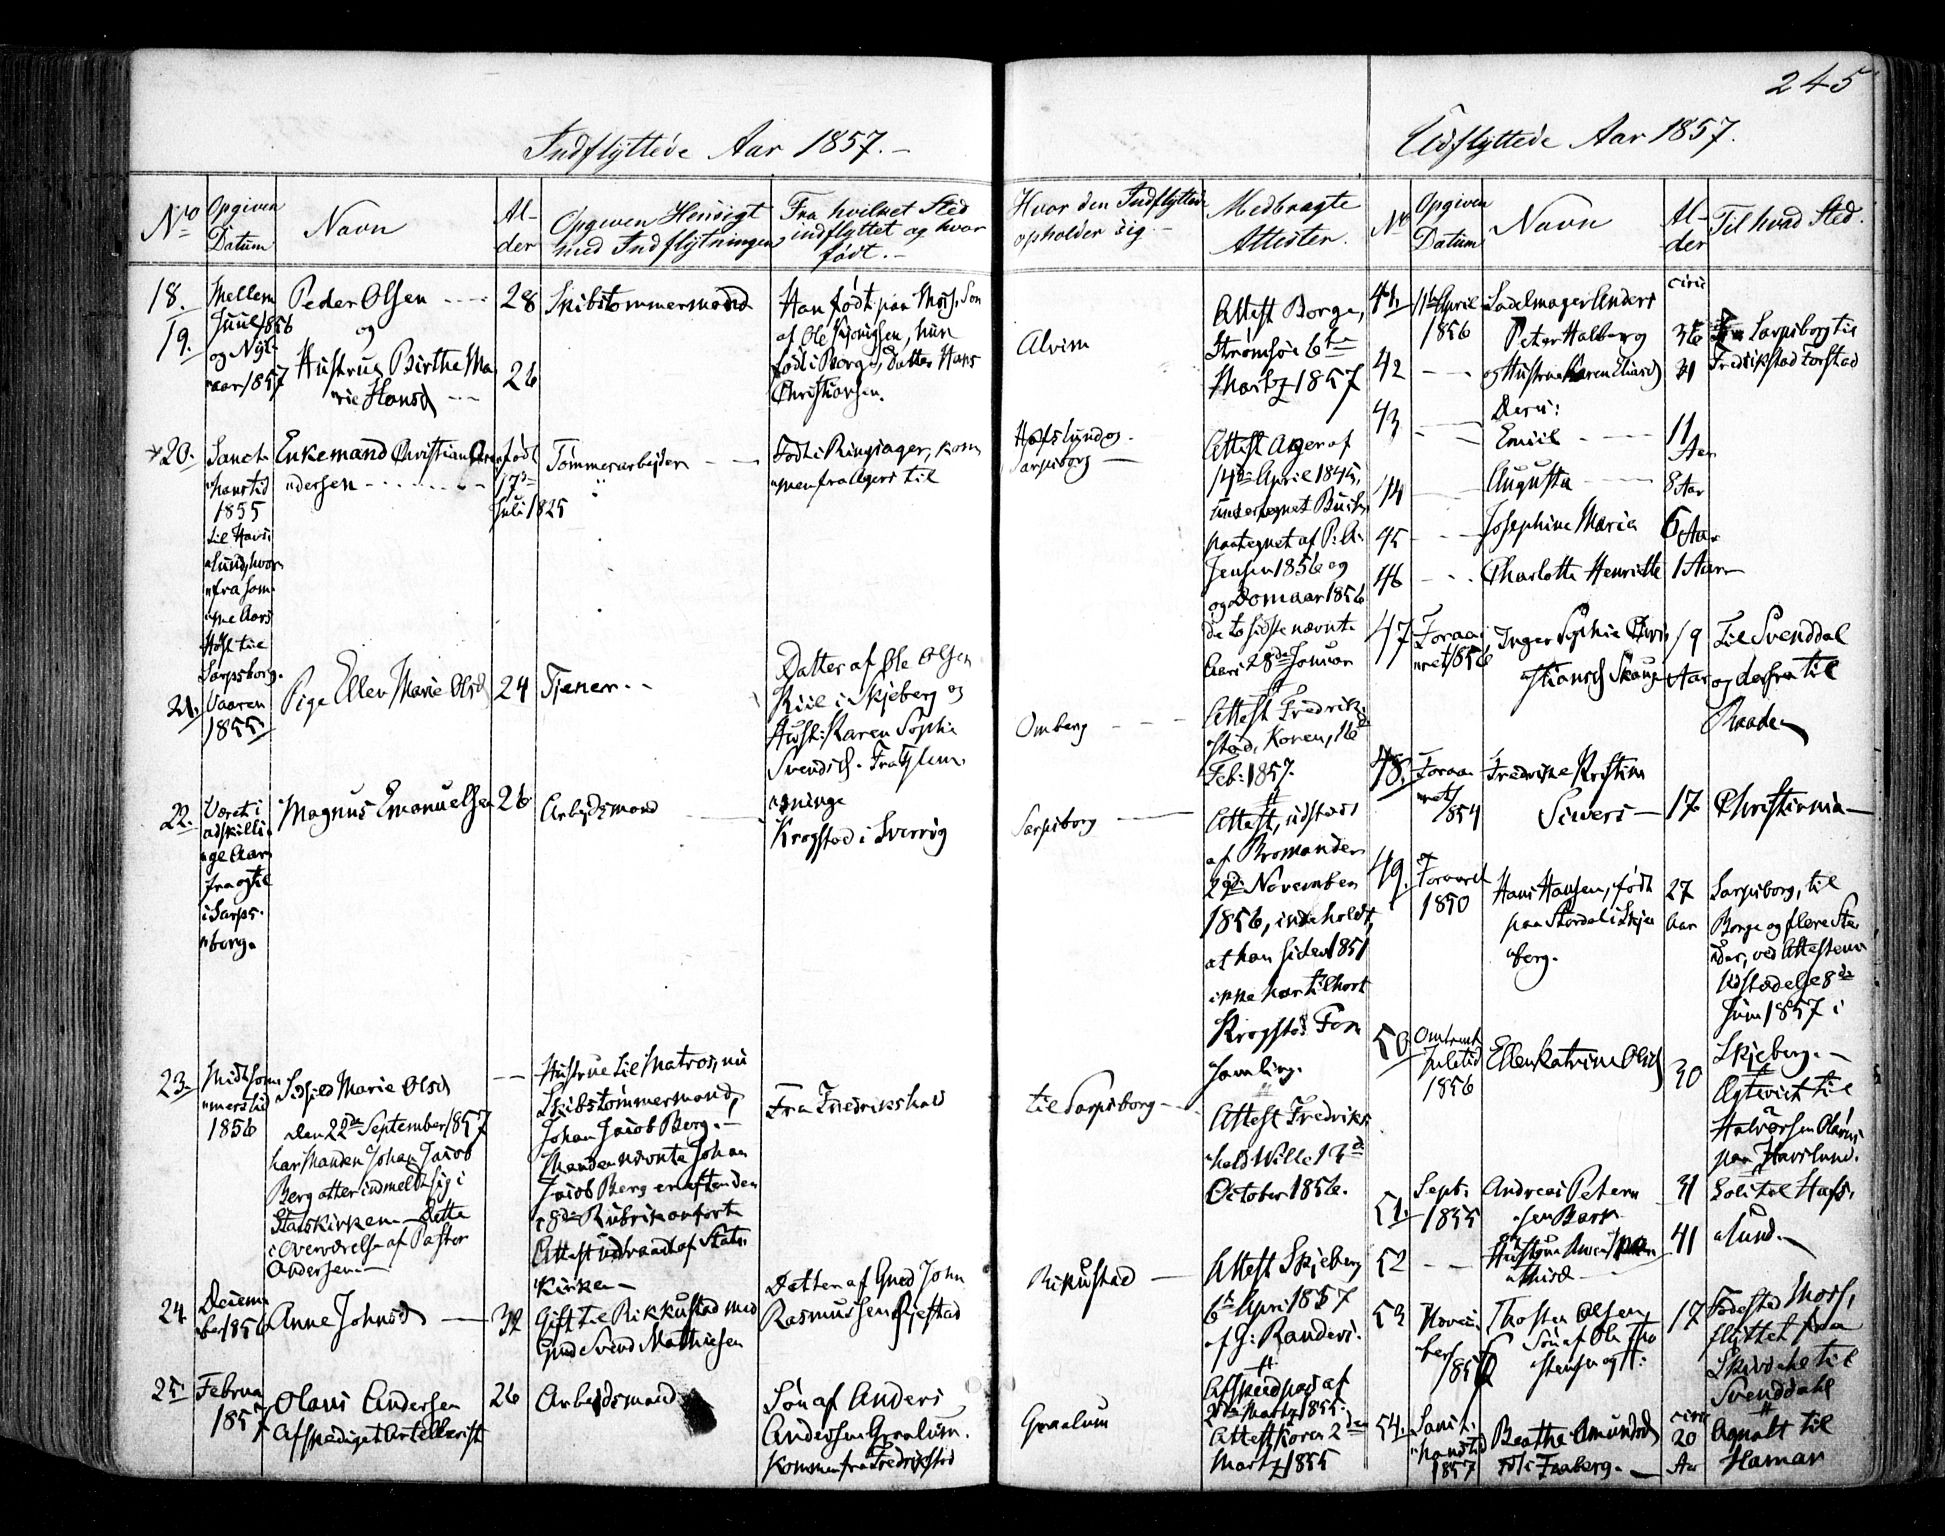 245
Indflyttede Aar 1857.-
Udflyttede Aar 1857.
No
Opgiven Datum
Navn
Al-
der
Opgiven Hensigt
med Indflytningen
Fra hvilket Sted
indflyttet og hvor
født.-
Hvor den Indflyttede
opholder sig.-
Medbragte
Attester.
No
Opgiven Datum
Navn
Al-
der
Til hvad Sted.
18.
19.
Mellem
Juul 1856
og Nyt-
aar 1857
Peder Olsen
og
Hustrue Birthe Ma
rie Hansd
28
26
Skibstømmermand
Han født paa Moss, Søn
af Ole
hun
født i Borge, Datter Hans
Christiansen.
Alvim
Attest Borge,
Strømsøe 6te
Martz 1857
20.
Sanct
hanstid
1855
til Hafs
lund, hvor
fra sam
me Aars
Høst til
Sarpsborg.
Enkemand Christian
dersen
født
17de
Juli 1825
Tømmerarbeider
Født i Ringsager, kom
men fra Agers til
Hafslund og
Sarpsborg
Attest Ager af
14de April 1845,
undertegnet
paategnet af P. A.
Jensen 1856 og
og Domaar 1856
de to sidste nævnte
Aar 28de Januar
21.
Vaaren
1855
Pige Ellen Marie Olsd
24
Tjener.
Datter af Ole Olsen
Kiil i Skjeberg og
Hustr: Karen Sophie
Svendsd. Fra Glem
minge
Omberg
Attest Fredrik
stad, Koren, 16de
Feb: 1857.
22.
Været i
adskilli
ge Aar
fra og til
i Sarps
borg.
Magnus Emanuelsen
26
Arbeidsmand
Krogstad i Sverrig
Sarpsborg
Attest, udstædt
af Bromander
29de November
1856, indeholdt,
at han siden 1851
ikke har tilhørt
Krogstad For
samling.
23.
Midtsom
merstid
1856
Sidsel Marie Olsd
den 22de September 1857
har Manden Johan Jacob
Berg atter indmeldt sig i
Statskirken. Dette
i Overværelse af Pastor
Andersen.
Hustrue til Matros, nu
Skibstømmermand,
Johan Jacob Berg.
Manden nævnte Johan
Jacob Berg er efter den
i 8de Rubrik anførte
Attest udtraadt af Stats
kirken
Fra Fredrikshald
til Sarpsborg
Attest Fredriks
hald Wille 13de
October 1856.
24
Decem
ber 1856
Anne Johnsd
32
Gift til Rikkustad med
Gmd Svend Mathiesen
Datter af Gmd John
Rasmussen
Rikustad
Attest Skjeberg
6te April 1857
af G: Randers.
25.
Februa
1857
Olaus Andersen
Afskediget Artellerist
26
Arbeidsmand
Søn af Anders
Andersen Graalum.
Kommen fra Fredrikstad
Graalum
Afskedspas af
Martz 1855.
Attest Koren 2den
Martz 1855
41.
April
1856
Sadelmager Anders
Peter Halberg
circ
36
Sarpsborg til
Fredrikstad Forstad
42
og Hustrue Karen Eliasd
31
43
Deres:
Emiil
11
Aar
44
Augusta
8 Aar
45
Josephine Marie
6 Aar
46
Charlotte Henriette
1 Aar
47
Foraa
ret 1856
Inger Sophie Chri
stiansd Skaug
19
Aar
Til Svenddal
og derfra til
Raade
48.
Foraa
ret
1854
Fredrikke Kristine
Siwers
17
Christiania
49.
Foraaret
1850
Hans Hansen, født
paa Stordal i Skje
berg.
27
Aar
Sarpsborg, til
Borge og flere Ste
der, ved Attestens
Udstædelse 8de
Juni 1857 i
Skjeberg.
50
Omtrent
Juletid
1856
Ellen Katrine Olsd
30
Ægteviet til
Halvorsen Olaves
paa Hafslund.
51.
Septbr
1855
Andreas Peter
sen Berg
31
til Hafs
lund.
52
Hustrue
41
53
Novem
ber
1856
Thosten Olsen
Søn af Ole Tho
stensen og H:
17
Fødested Moss,
flyttet fra
til
Svenddahl
54.
Sanct
hanstid
1857
Beathe Amundsd
Faaberg.
circ
20
Aar
Agnalt til
Hamar